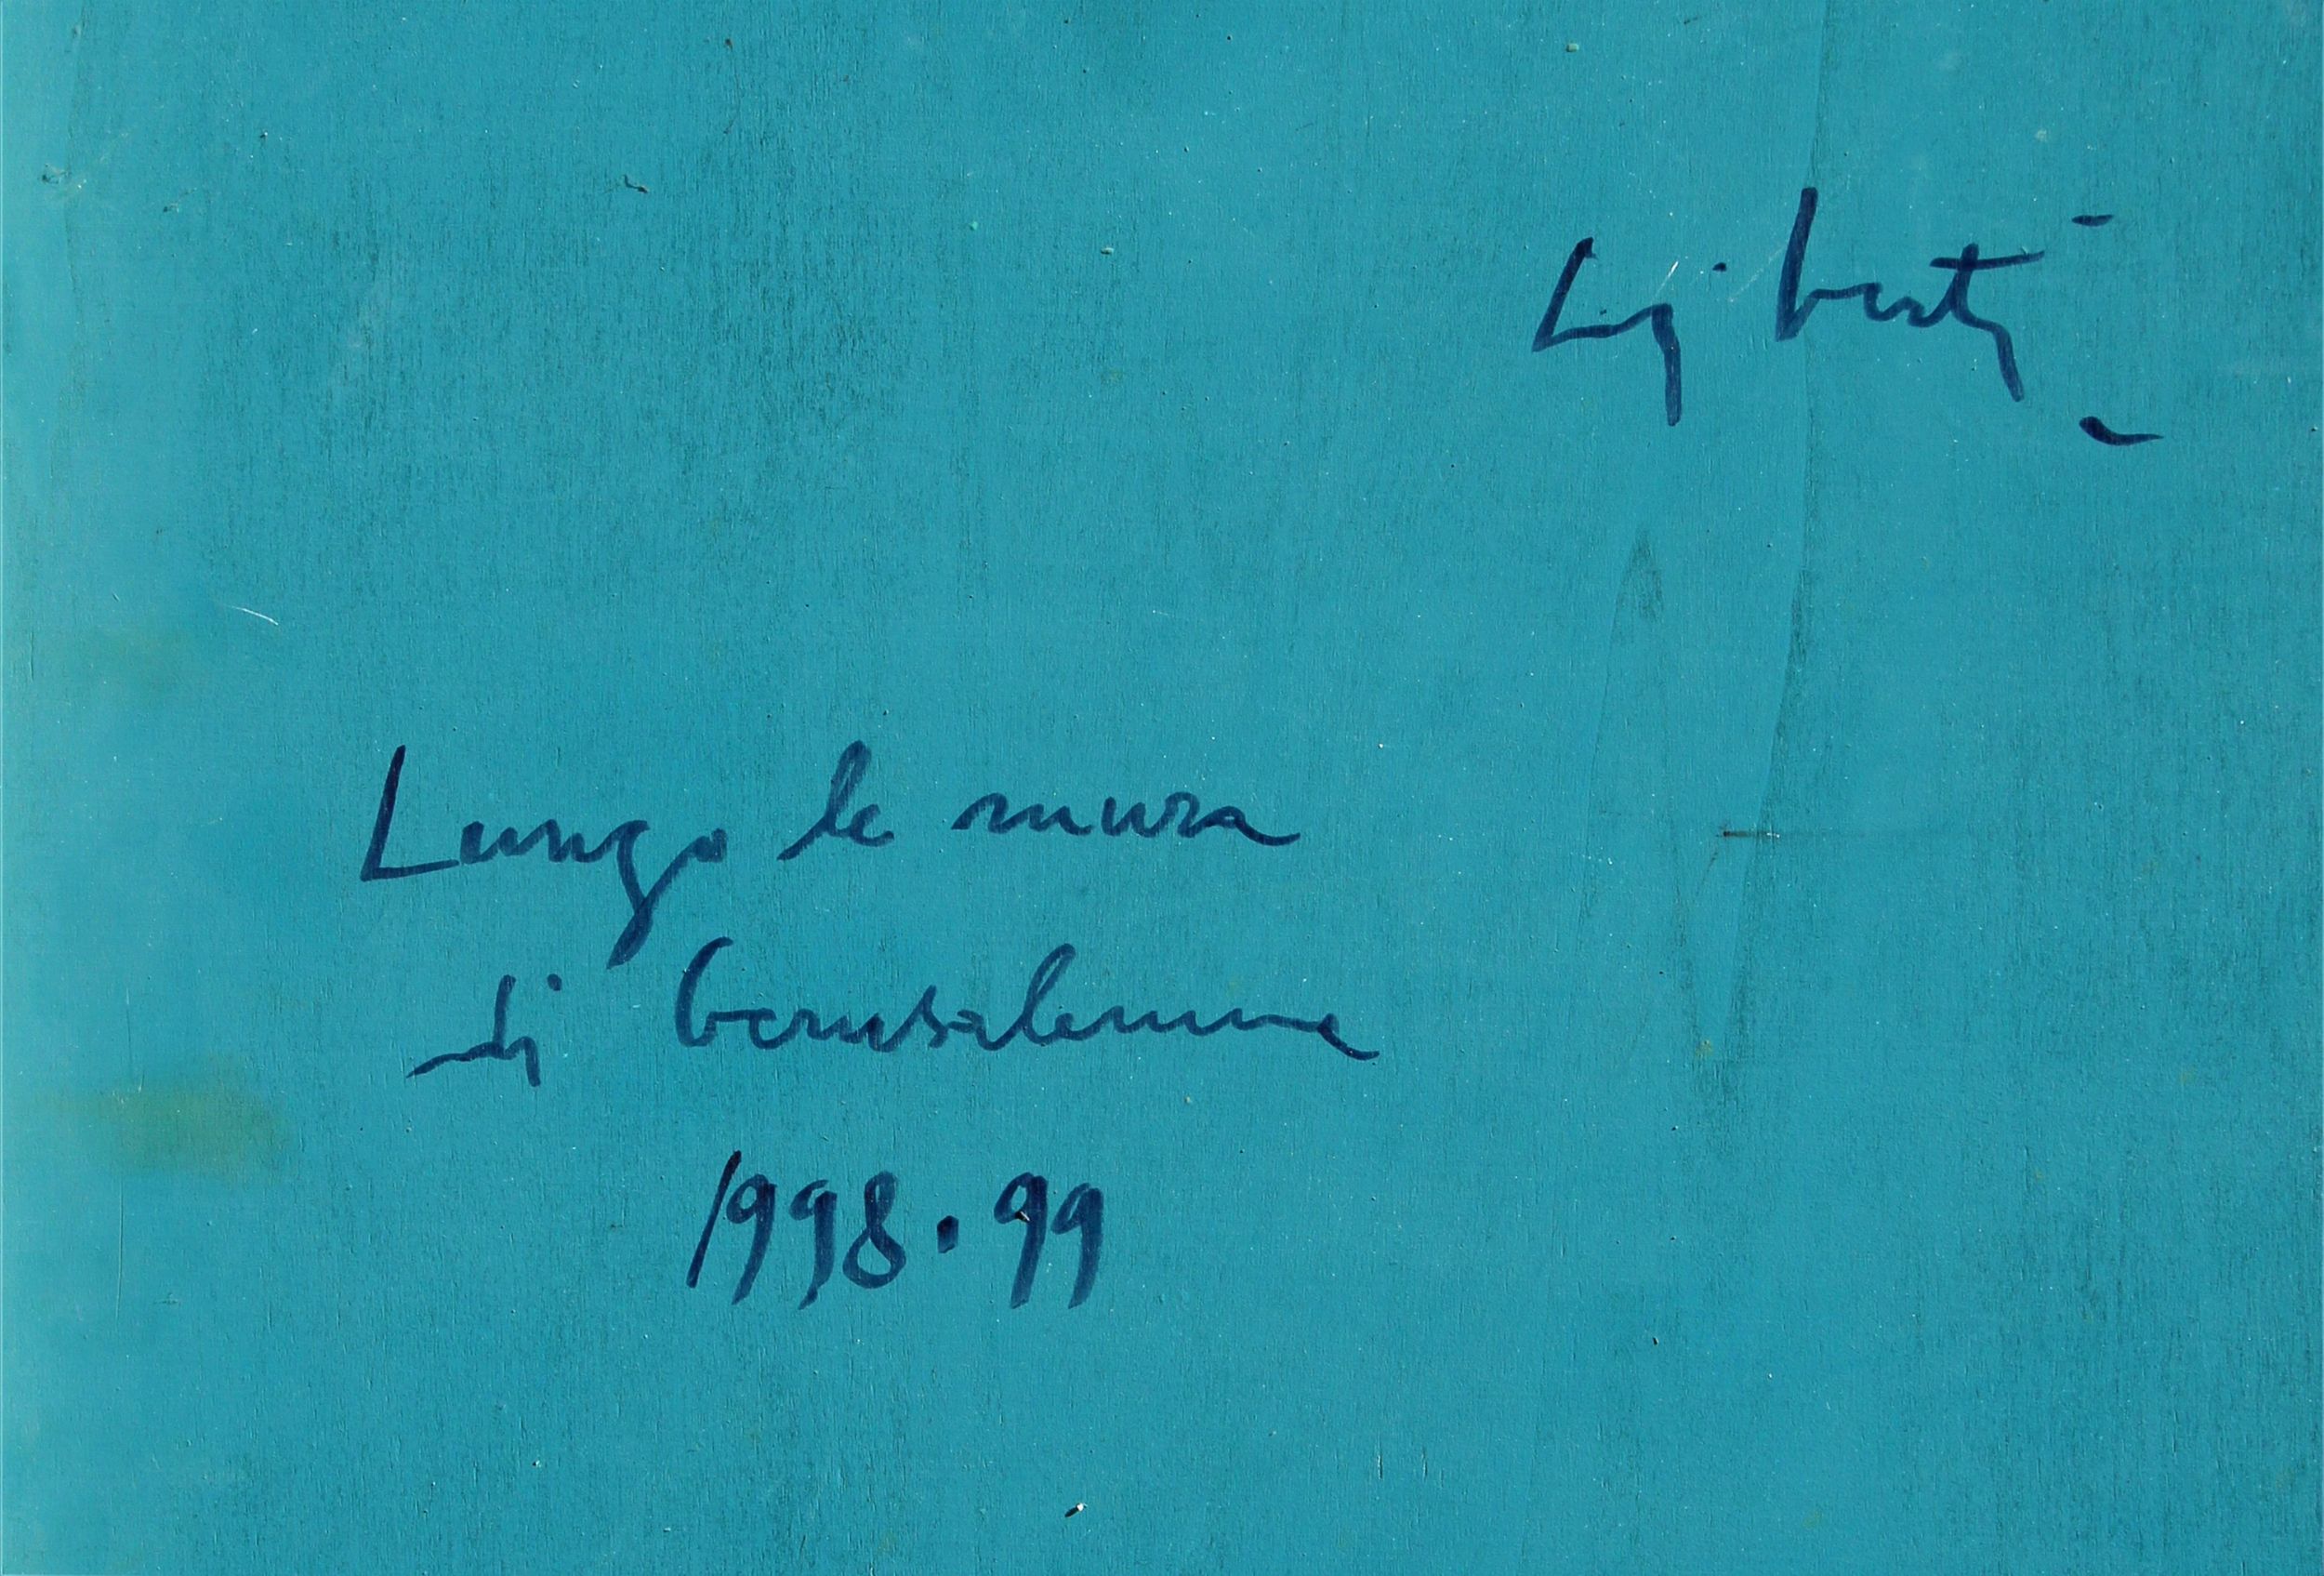 Liberti
Lungo le mura
di Gerusalemme
1998·99